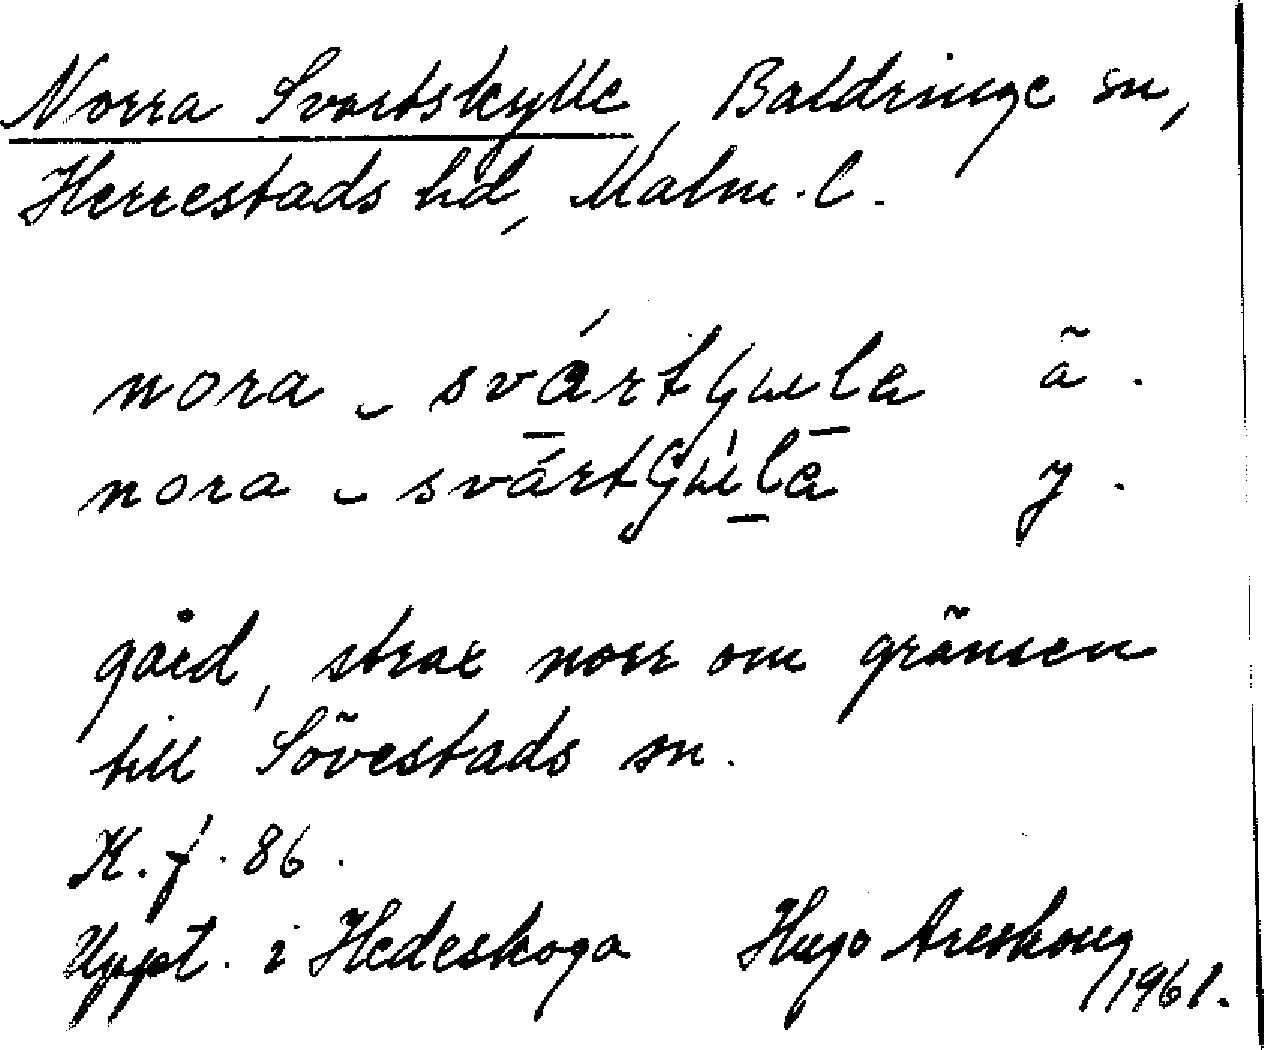 Norra Svartskylle, Baldringe sn,
Herrestads hd, Malm. l.
nora - svárt ä.
nora - svárt y.
gård, strax norr om gränsen
till Sövestads sn.
K. f. 86.
Uppt. i Hedeskoga Hugo Areskoug
1961.